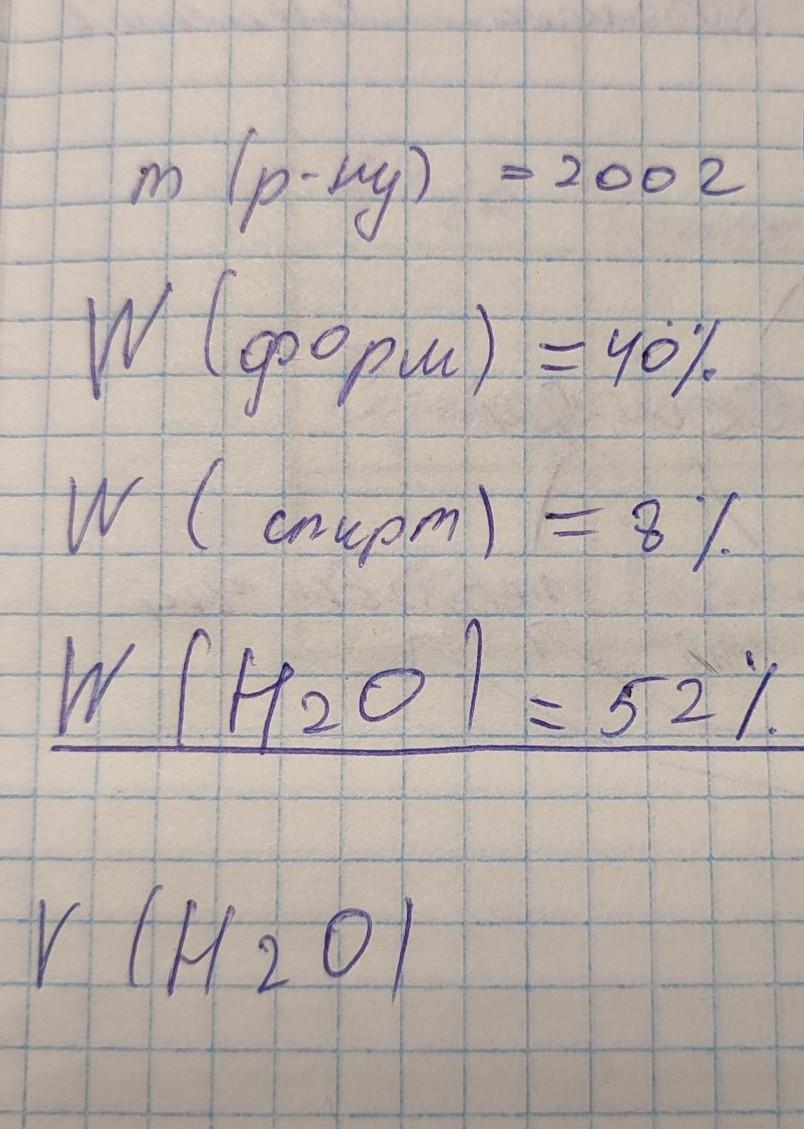 m (р-ну) = 200 г
W (форм) = 40%
W (спирт) = 8%
W (H2O) = 52%
V (H2O)